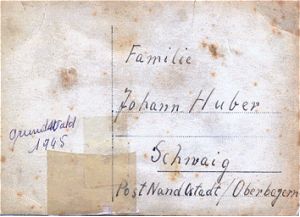 Familie
Johann Huber
Schwaig
Post Nandlstadt/Oberbayern
Grundwald
1945